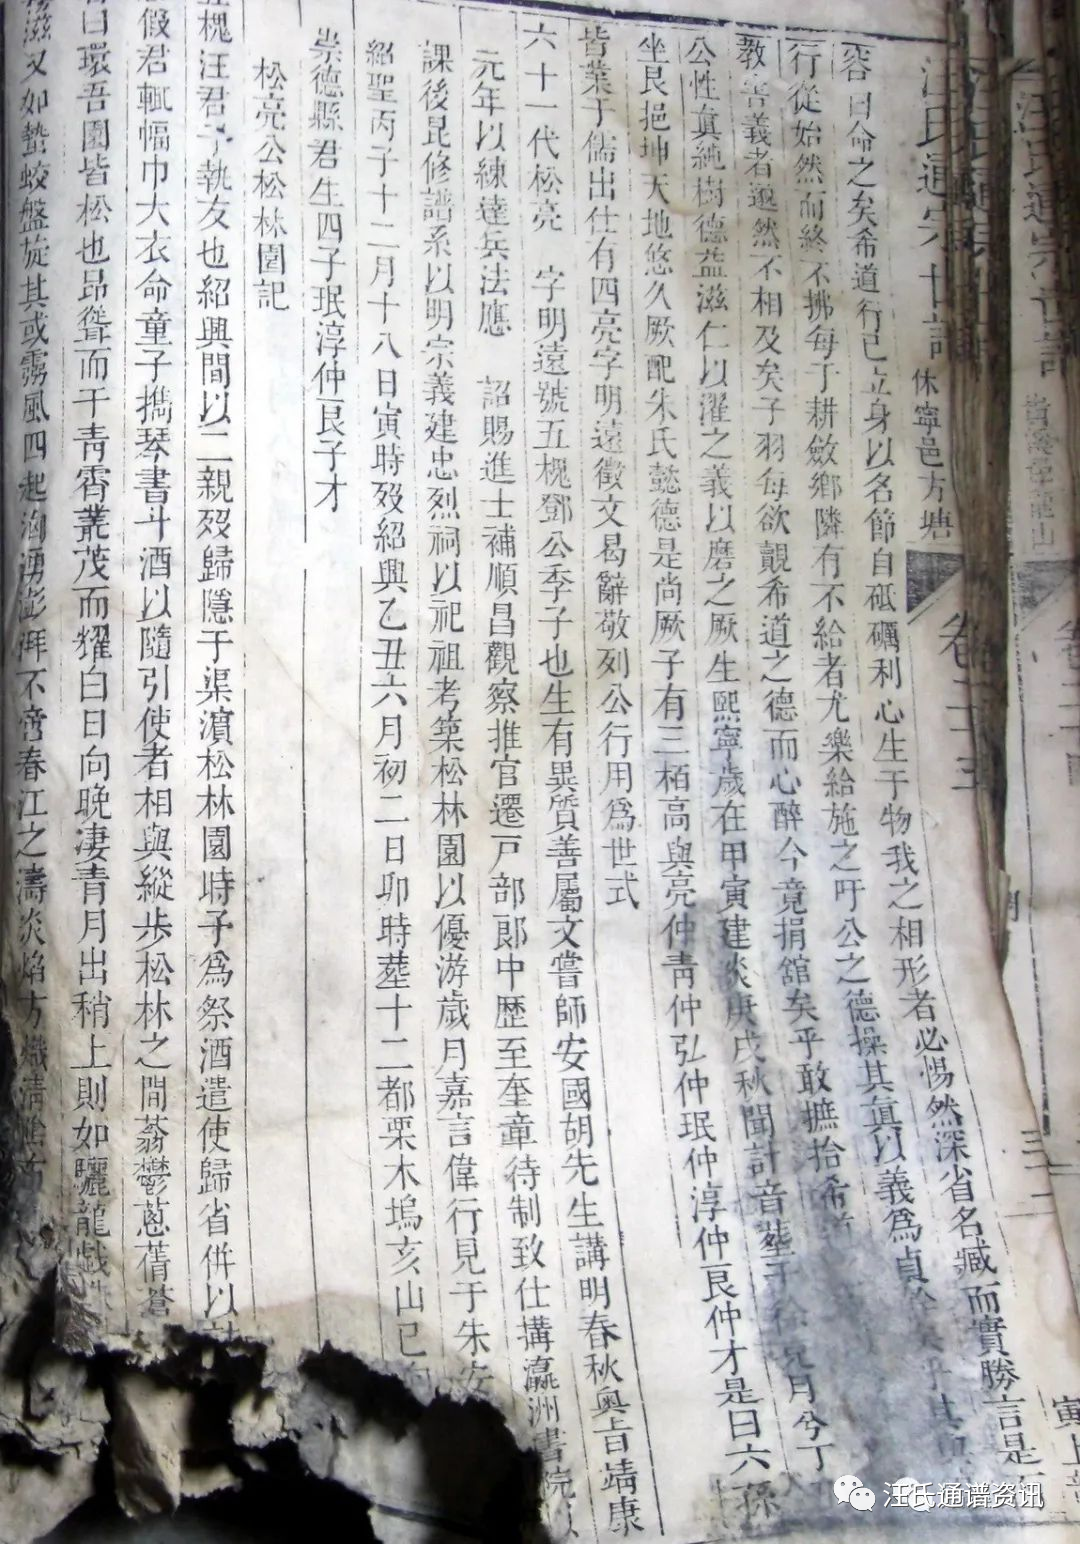 汪氏通宗世譜
休寧邑方塘
卷二十三
容曰命之矣希道行己立身以名節自砥礪利心生于物我之相形者必惕然深省名臧而實勝言是
行從始然而終不拂每于耕斂鄉隣有不給者尤樂給施之吁公之德操其眞以義爲貞
教善義者邈然不相及矣子羽每欲覿希道之德而心醉今竟捐舘矣乎敢摭拾希
公性眞純樹德益滋仁以濯之義以磨之厥生熙寧歲在甲寅建炎庚戌秋聞訃音塟于 兮丁
坐艮挹坤天地悠久厥配朱氏懿德是尚厥子有三栢高與亮仲靑仲弘仲珉仲淳仲艮仲才是曰六孫
皆業于儒出仕有四亮字明遠徵文曷辭敬列公行用爲世式
六十一代松亮 字明遠號五槐鄧公季子也生有異質善屬文嘗師安國胡先生講明春秋奥旨靖康
元年以練達兵法應 詔賜進士補順昌觀察推官遷戸部郎中歷至奎章待制致仕搆瀛洲書院以
課後昆修譜系以明宗義建忠烈祠以祀祖考築松林園以優游歲月嘉言偉行見于朱
紹聖丙子十二月十八日寅時歿紹興乙丑六月初二日卯時塟十二都栗木塢亥山巳向
崇德縣君生四子珉淳仲艮子才
松亮公松林園記
五槐汪君予執友也紹興間以二親歿歸隱于渠濱松林園時予爲祭酒遣使歸省併以
假君輒幅巾大衣命童子擕琴書斗酒以隨引使者相與縱步松林之間蓊鬱蔥蒨蒼
曰環吾園皆松也昂聳而干靑霄叢茂而耀白日向晚凄青月出稍上則如驪龍戯
滋又如蟄蛟盤旋其或霧風四起洶湧澎湃不啻春江之濤炎焰方熾淸
汪氏通谱资讯